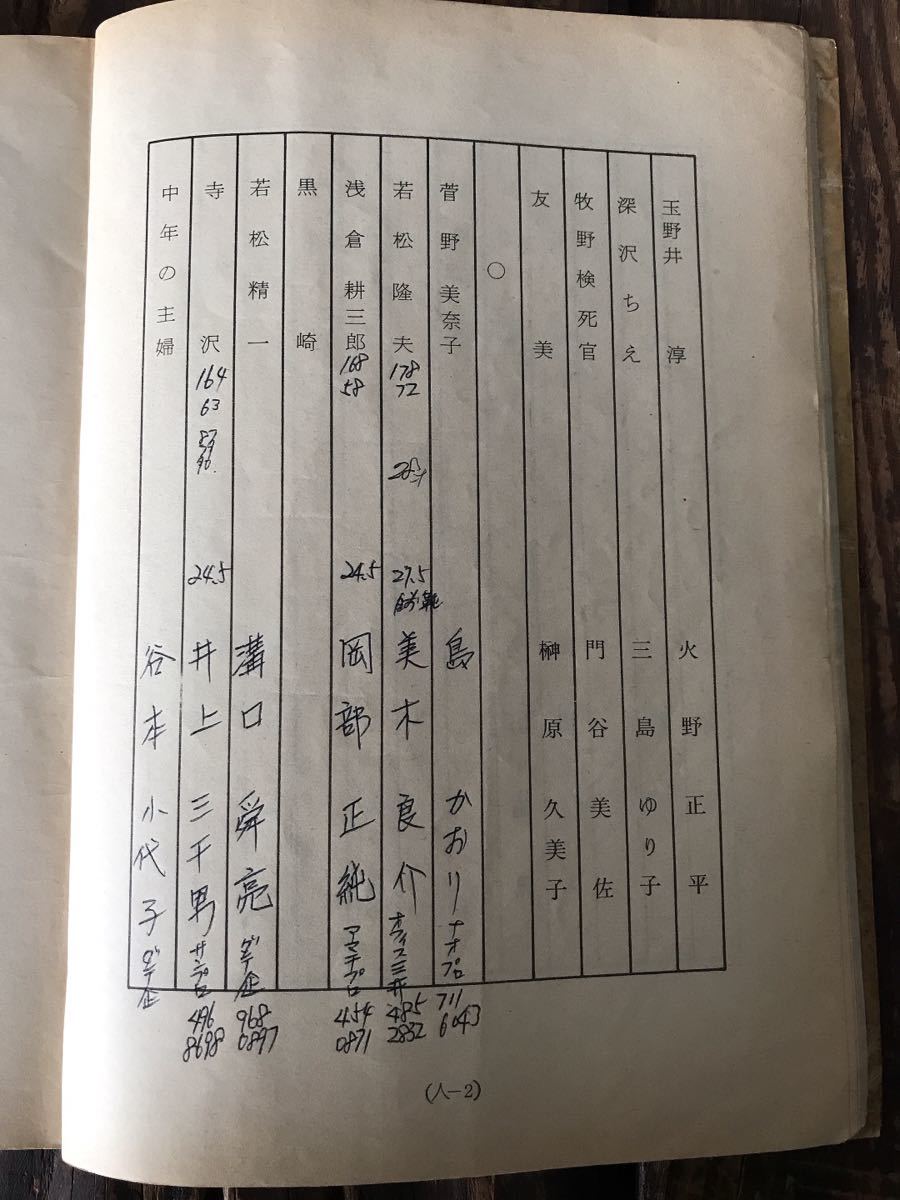 玉野井 淳 火野正平
深沢ちえ 三島ゆり子
牧野検死官 門谷美佐
友美 榊原久美子
○
菅野美奈子 島 かおり ナオプロ 711 6043
若松隆夫 178 72 27.5 美木 良介 オフィス三井 485 2882
浅倉耕三郎 168 58 24.5 岡部 正純 アマチプロ 454 0871
黒崎
若松精一 溝口 舜亮 ダテ企 968 0897
寺沢 164 63 24.5 井上 三千男 サンプロ 496 8698
中年の主婦 谷本 小代子 ダテ企
(人—2)